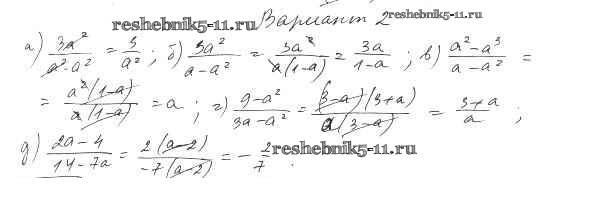 reshebnik5-11.ru Вариант 2 reshebnik5-11.ru
а) 3a²/(a²·a²) = 3/a² ; б) 3a²/(a-a²) = 3a²/(a(1-a)) = 3a/(1-a) ; в) (a²-a³)/(a-a²) =
= a²(1-a)/(a(1-a)) = a ; г) (9-a²)/(3a-a²) = (3-a)(3+a)/(a(3-a)) = (3+a)/a ;
д) (2a-4)/(14-7a) = 2(a-2)/(-7(a-2)) = -2/7 . reshebnik5-11.ru